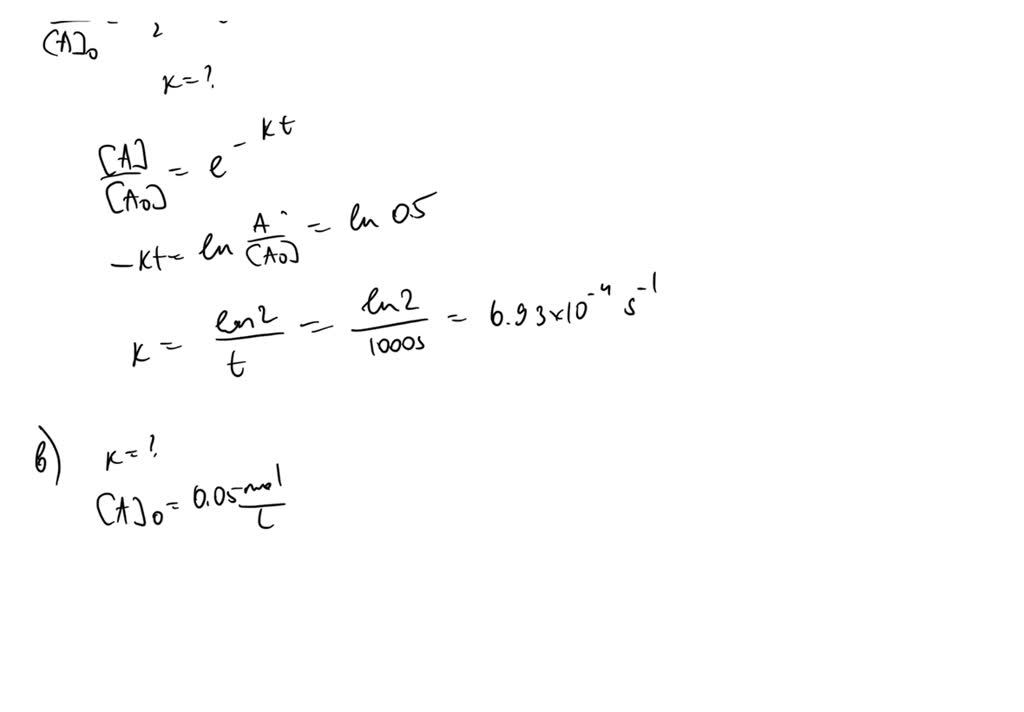 [A]₀ - 2 -
K=?
[A]/[A₀] = e^-Kt
-Kt= ln A/[A₀] = ln 05
K = ln2/t = ln2/1000s = 6.93×10^-4 s^-1
b) K=?
[A]₀= 0.05 mol/L